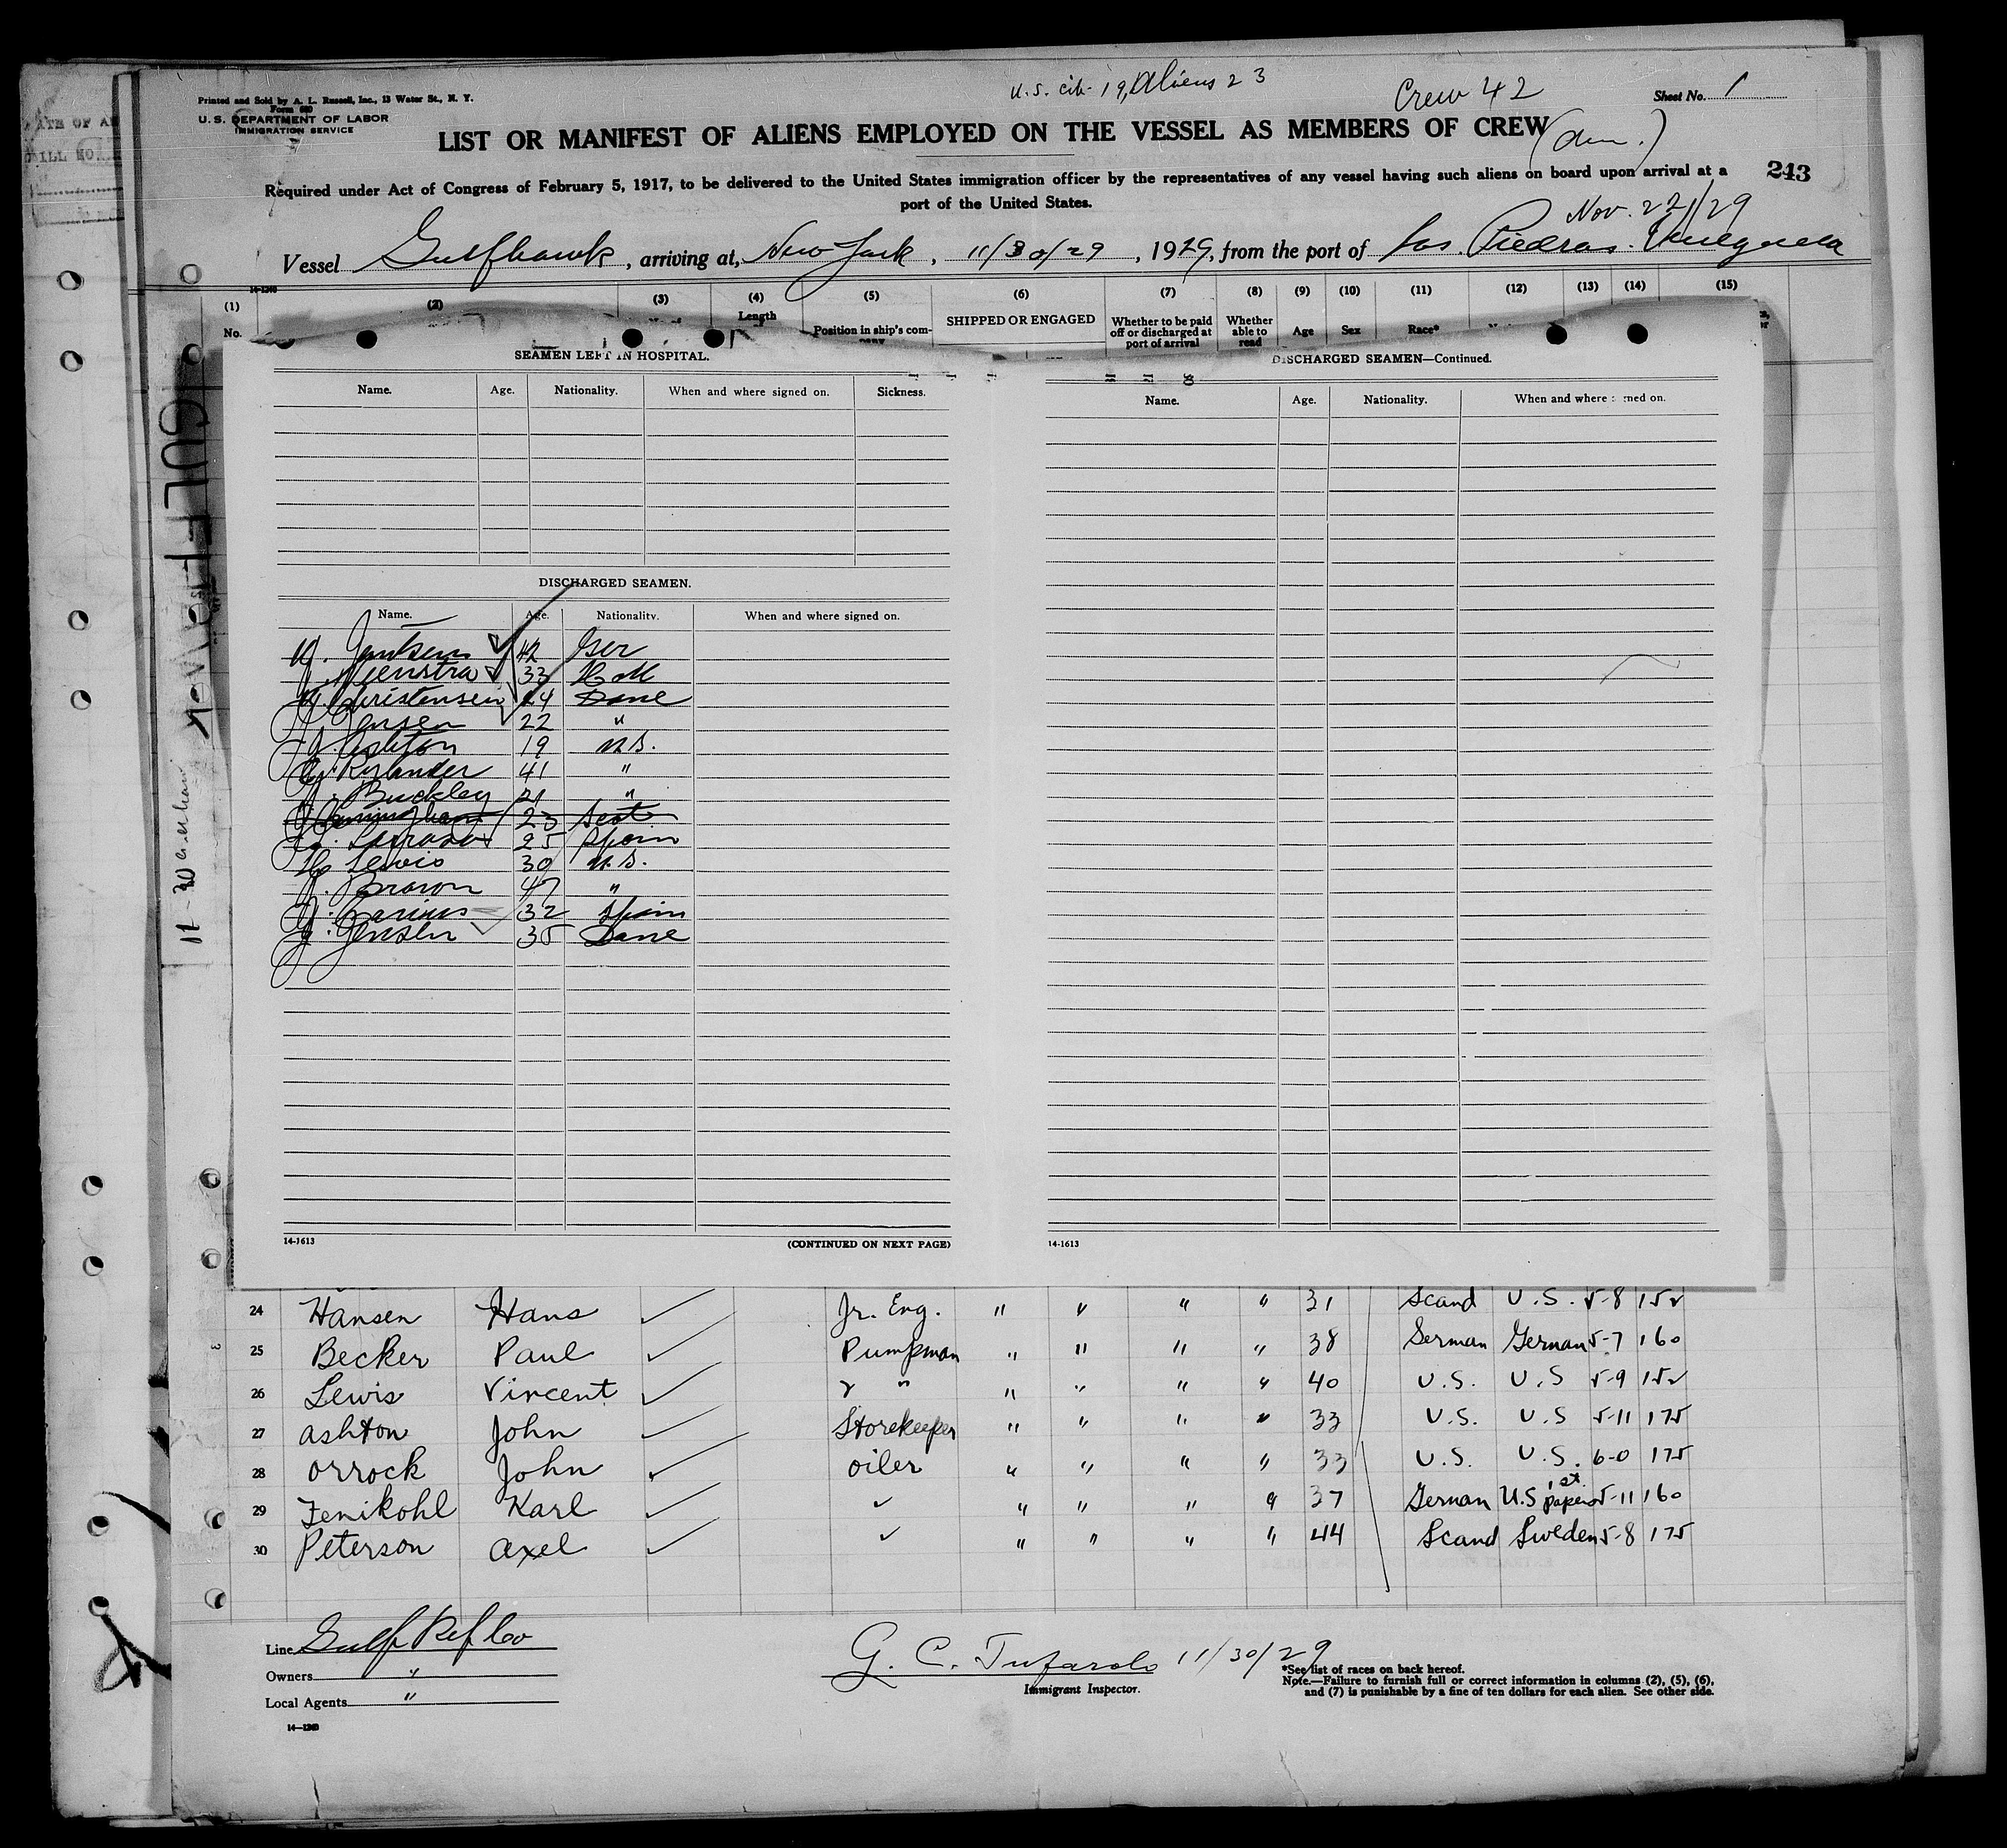 U.S. cit- 19, Aliens 23
Crew 42
Sheet No. 1
Printed and Sold by A. L. Russell, Inc., 13 Water St., N. Y.
Form 680
U.S. DEPARTMENT OF LABOR
IMMIGRATION SERVICE
LIST OR MANIFEST OF ALIENS EMPLOYED ON THE VESSEL AS MEMBERS OF CREW
243
Required under Act of Congress of February 5, 1917, to be delivered to the United States immigration officer by the representatives of any vessel having such aliens on board upon arrival at a
port of the United States.
Nov. 22/29
Vessel Gulfhawk, arriving at, New York, 11/30/29, 1929, from the port of Las Piedras. Venezuela
(1) (2) (3) (4) (5) (6) (7) (8) (9) (10) (11) (12) (13) (14) (15)
No. Length Position in ship's com- SHIPPED OR ENGAGED Whether to be paid off or discharged at port of arrival Whether able to read Age Sex Race*
SEAMEN LEFT IN HOSPITAL.
Name. Age. Nationality. When and where signed on. Sickness.
DISCHARGED SEAMEN.
Name. Age. Nationality. When and where signed on.
42 Ger
33 Holl
Christensen 24 Dane
J. Jensen 22 "
J. Ashton 19 U.S.
Rylander 41 "
J. Buckley 21 "
Cunningham 23 Scot
25 Spain
Lewis 30 U.S.
J. Brown 47 "
32 Spain
J. Jensen 35 Dane
14-1613
(CONTINUED ON NEXT PAGE)
DISCHARGED SEAMEN—Continued.
Name. Age. Nationality. When and where signed on.
14-1613
24 Hansen Hans Jr. Eng. " " " " 31 Scand U.S. 5-8 152
25 Becker Paul Pumpman " " " " 38 German German 5-7 160
26 Lewis Vincent 2 " " " " " 40 U.S. U.S 5-9 152
27 Ashton John Storekeeper " " " " 33 U.S. U.S 5-11 175
28 Orrock John oiler " " " " 33 U.S. U.S. 6-0 175
29 Fenikohl Karl " " " " 37 German U.S 1st papers 5-11 160
30 Peterson Axel " " " " 44 Scand Sweden 5-8 175
Line Gulf Ref Co
Owners "
Local Agents "
14—1240
G. C. Tufarolo 11/30/29
Immigrant Inspector.
*See list of races on back hereof.
Note.—Failure to furnish full or correct information in columns (2), (5), (6),
and (7) is punishable by a fine of ten dollars for each alien. See other side.